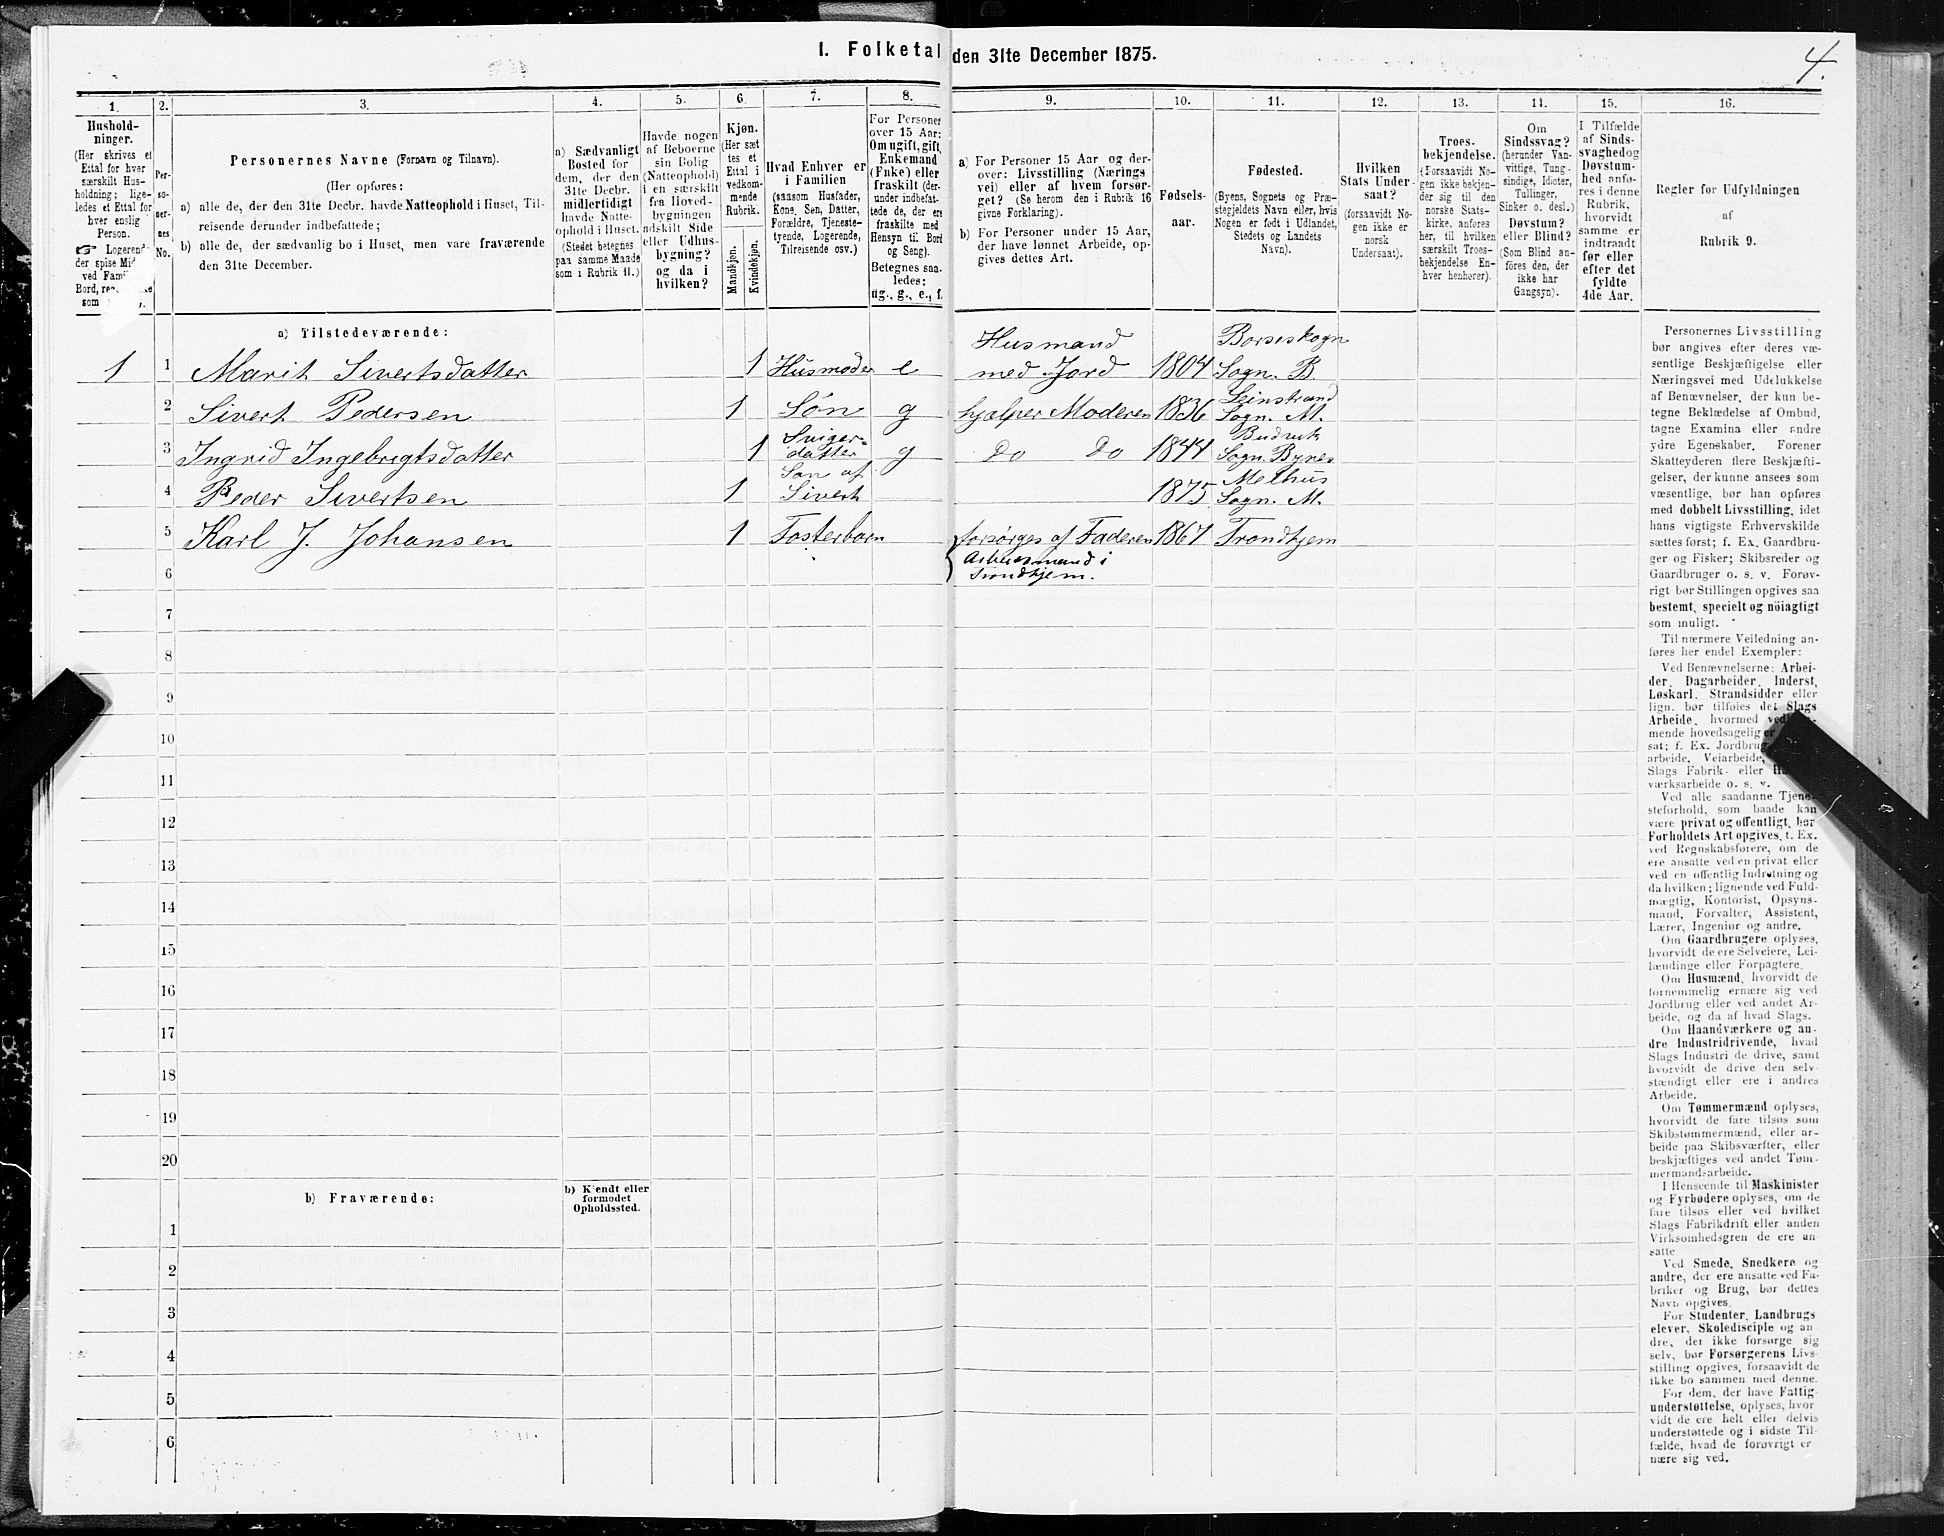 I. Folketal den 31te December 1875.
4.
1.
Hushold-
ninger.
(Her skrives et
Ettal for hver
særskilt Hus-
holdning; lige-
ledes et Ettal for
hver enslig
Person.
☞ Logerend
der spise Mid
ved Famil
Bord,
som
2.
Per-
so-
ner-
nes
No.
3.
Personernes Navne (Fornavn og Tilnavn).
(Her opføres:
a) alle de, der den 31te Decbr. havde Natteophold i Huset, Til-
reisende derunder indbefattede;
b) alle de, der sædvanlig bo i Huset, men vare fraværende
den 31te December.
4.
a) Sædvanligt
Bosted for
dem, der den
31te Decbr.
midlertidigt
havde Natte-
ophold i Huset.
(Stedet betegnes
paa samme Maade
som i Rubrik 11.)
5.
Havde nogen
af Beboerne
sin Bolig
(Natteophold)
i en særskilt
fra Hoved-
bygningen
adskilt Side
eller Udhus-
bygning?
og da i
hvilken?
6.
Kjøn.
(Her sæt
tes et
Ettal i
vedkom-
mende
Rubrik.
Mandkjøn.
Kvindekjøn.
7.
Hvad Enhver er
i Familien
(saasom Husfader,
Kone, Søn, Datter,
Forældre, Tjeneste-
tyende, Logerende,
Tilreisende osv.)
8.
For Personer
over 15 Aar:
Om ugift, gift,
Enkemand
(Enke) eller
fraskilt (der-
under indbefat-
tede de, der ere
fraskilte med
Hensyn til Bord
og Seng).
Betegnes saa-
ledes:
ug., g., e., f.
9.
a) For Personer 15 Aar og der-
over: Livsstilling (Nærings
vei) eller af hvem forsør-
get? (Se herom den i Rubrik 16
givne Forklaring).
b) For Personer under 15 Aar,
der have lønnet Arbeide, op-
gives dettes Art.
10.
Fødsels-
aar.
11.
Fødested.
(Byens, Sognets og Præ-
stegjeldets Navn eller, hvis
Nogen er født i Udlandet,
Stedets og Landets
Navn).
12.
Hvilken
Stats Under-
saat?
(forsaavidt No-
gen ikke er
norsk
Undersaat).
13.
Troes-
bekjendelse.
(Forsaavidt No-
gen ikke bekjen-
der sig til den
norske Stats-
kirke, anføres
her, til hvilken
særskilt Troes-
bekjendelse En-
hver henhører).
14.
Om
Sindssvag?
(herunder Van-
vittige, Tung-
sindige, Idioter,
Tullinger,
Sinker o. desl.)
Døvstum?
eller Blind?
(Som Blind an-
føres den, der
ikke har
Gangsyn).
15.
I Tilfælde
af Sinds-
svaghed og
Døvstum-
hed anfø-
res i denne
Rubrik,
hvorvidt
samme er
indtraadt
før eller
efter det
fyldte
4de Aar.
16.
Regler for Udfyldningen
af
Rubrik 9.
a) Tilstedeværende:
Husmand Borseskogn
1 1 Marit Sivertsdatter 1 Husmoder e med Jord 1804 Sogn. B.
Leinstrand
2 Sivert Pedersen 1 Søn g hjælper Moderen 1836 Sogn. M.
Sviger- Budvik
3 Ingrid Ingebrigtsdatter 1 datter g Do Do 1844 Sogn. Bynes
Søn af Melhus
4 Peder Sivertsen 1 Sivert 1875 Sogn. M.
5 Karl J. Johansen 1 Fosterbarn forsørges af Faderen 1867 Trondhjem
6 Arbeidsmand i
Trondhjem.
7
8
9
10
11
12
13
14
15
16
17
18
19
20
b) Fraværende:
b) Kjendt eller
formodet
Opholdssted.
1
2
3
4
5
6
Personernes Livsstilling
bør angives efter deres væ-
sentlige Beskjæftigelse eller
Næringsvei med Udelukkelse
af Benævnelser, der kun be-
tegne Beklædelse af Ombud,
tagne Examina eller andre
ydre Egenskaber. Forener
Skatteyderen flere Beskjæfti-
gelser, der kunne ansees som
væsentlige, bør han opføres
med dobbelt Livsstilling, idet
hans vigtigste Erhvervskilde
sættes først; f. Ex. Gaardbru-
ger og Fisker; Skibsreder og
Gaardbruger o. s. v. Forøv-
rigt bør Stillingen opgives saa
bestemt, specielt og nöiagtigt
som muligt.
Til nærmere Veiledning an-
føres her endel Exempler:
Ved Benævnelserne: Arbei-
der, Dagarbeider, Inderst,
Løskarl, Strandsidder eller
lign. bør tilføies det Slags
Arbeide, hvormed ved
mende hovedsagelig er
sat; f. Ex. Jordbrug
arbeide, Veiarbeide,
Slags Fabrik- eller
værksarbeide o. s. v.
Ved alle saadanne Tjene-
steforhold, som baade kan
være privat og offentligt, bør
Forholdets Art opgives, t. Ex.
ved Regnskabsførere, om de
ere ansatte ved en privat eller
ved en offentlig Indretning og
da hvilken; lignende ved Fuld-
mægtig, Kontorist, Opsyns-
mand, Forvalter, Assistent,
Lærer, Ingeniør og andre.
Om Gaardbrugere oplyses,
hvorvidt de ere Selveiere, Lei-
lændinge eller Forpagtere.
Om Husmænd, hvorvidt de
fornemmelig ernære sig ved
Jordbrug eller ved andet Ar-
beide, og da af hvad Slags.
Om Haandværkere og an-
dre Industridrivende, hvad
Slags Industri de drive, samt
hvorvidt de drive den selv-
stændigt eller ere i andres
Arbeide.
Om Tømmermænd oplyses,
hvorvidt de fare tilsøs som
Skibstømmermænd, eller ar-
beide paa Skibsværfter, eller
beskjæftiges ved andet Tøm-
mermandsarbeide.
I Henseende til Maskinister
og Fyrbødere oplyses, om de
fare tilsøs eller ved hvilket
Slags Fabrikdrift eller anden
Virksomhedsgren de ere an-
satte
Ved Smede, Snedkere og
andre, der ere ansatte ved Fa-
briker og Brug, bør dettes
Navn opgives.
For Studenter, Landbrugs
elever, Skoledisciple og an-
dre, der ikke forsørge sig
selv, bør Forsørgerens Livs-
stilling opgives, forsaavidt de
ikke bo sammen med denne.
For dem, der have Fattig
understøttelse, oplyses, hvor
vidt de ere helt eller delvis
understøttede og i sidste Til-
fælde, hvad de forøvrigt er
nære sig ved.